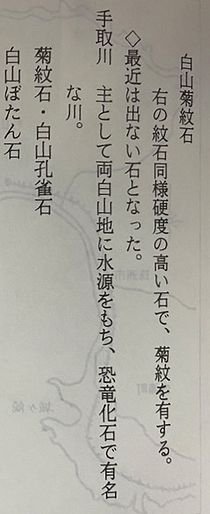 白山菊紋石
右の紋石同様硬度の高い石で、菊紋を有する。
◇最近は出ない石となった。
手取川　主として両白山地に水源をもち、恐竜化石で有名
な川。
菊紋石・白山孔雀石
白山ぼたん石